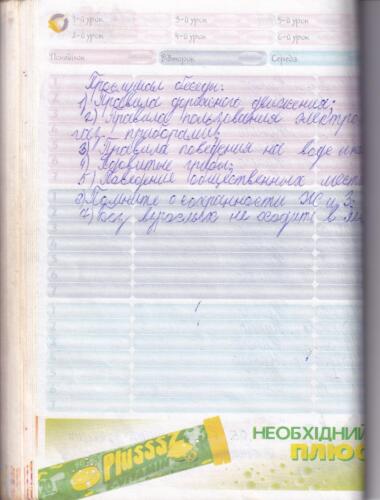 1-й урок 3-й урок 5-й урок
2-й урок 4-й урок 6-й урок
Понеділок Вівторок Середа
Прослушал беседы:
1) Правила дорожного движения;
2) Правила пользования электро
газ. приборами;
3) Правила поведения на воде и
4) Ядовитые грибы;
5) Поведение общественных мест
6) Помните о сохранности Ж и З
7) Без взрослых не ходить в
Plusssz
НЕОБХІДНИЙ
ПЛЮС